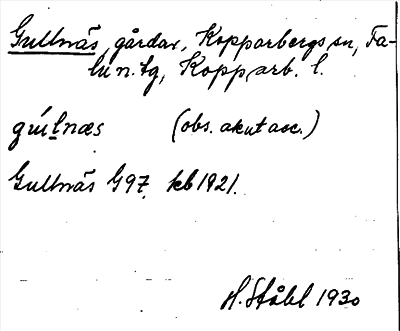 Gullnäs, gårdar, Kopparbergs sn, Fa-
lu n. tg, Kopparb. l.
gúl̲næs (obs. akut acc.)
Gullnäs G97. kb 1921.
H. Ståhl 1930